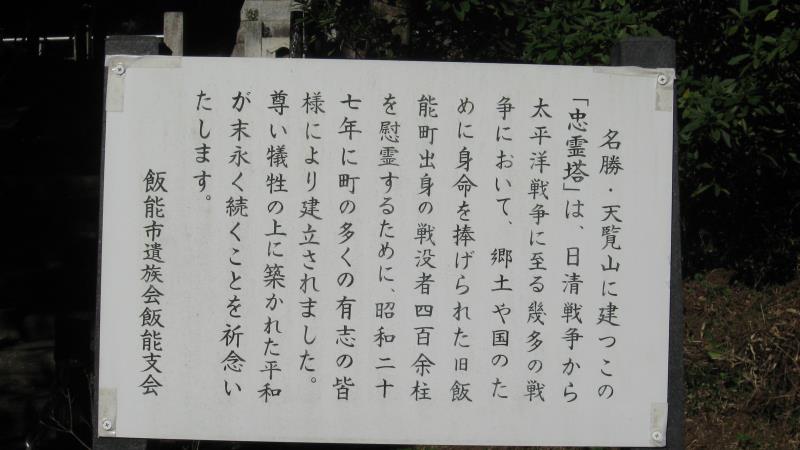 名勝・天覧山に建つこの
「忠霊塔」は、日清戦争から
太平洋戦争に至る幾多の戦
争において、郷土や国のた
めに身命を捧げられた旧飯
能町出身の戦没者四百余柱
を慰霊するために、昭和二十
七年に町の多くの有志の皆
様により建立されました。
尊い犠牲の上に築かれた平和
が末永く続くことを祈念い
たします。
飯能市遺族会飯能支会